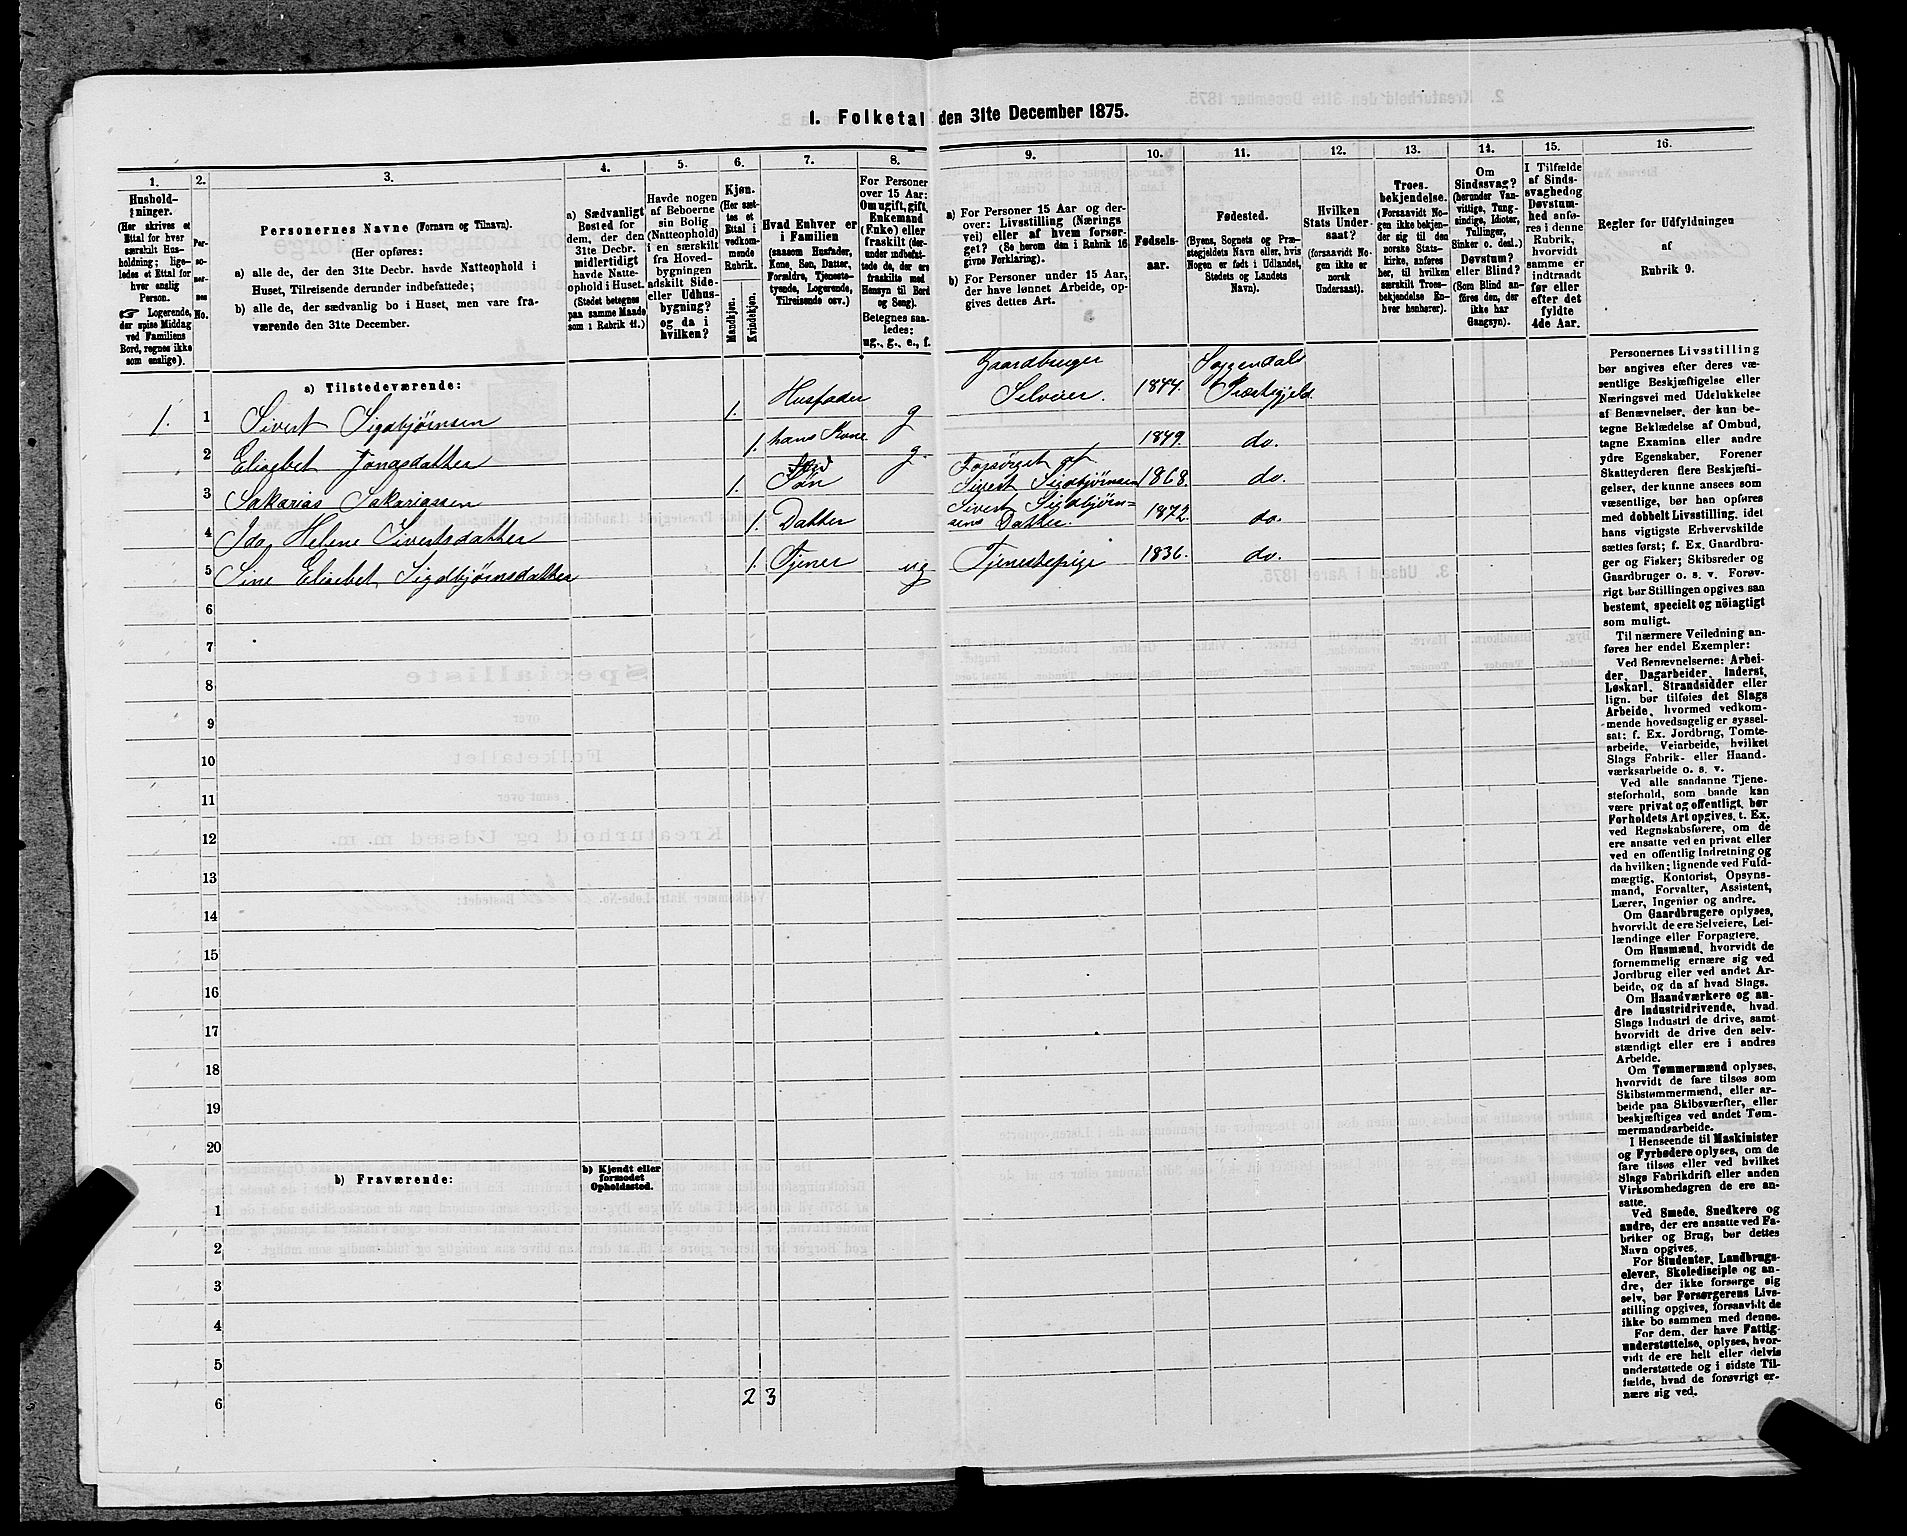 1. Folketal den 31te December 1875.
1.
Hushold-
ninger.
(Her skrives et
Ettal for hver
særskilt Hus-
holdning; lige-
ledes et Ettal for
hver enslig
Person.
☞ Logerende,
der spise Middag
ved Familiens
Bord, regnes ikke
som enslige).
2.
Per-
so-
ner-
nes
No.
3.
Personernes Navne (Fornavn og Tilnavn).
(Her opføres:
a) alle de, der den 31te Decbr. havde Natteophold i
Huset, Tilreisende derunder indbefattede;
b) alle de, der sædvanlig bo i Huset, men vare fra-
værende den 31te December.
4.
a) Sædvanligt
Bosted for
dem, der den
31te Decbr.
midlertidigt
havde Natte-
ophold i Huset.
(Stedet betegnes
paa samme Maade
som i Rubrik 11.)
5.
Havde nogen
af Beboerne
sin Bolig
(Natteophold)
i en særskilt
fra Hoved-
bygningen
adskilt Side-
eller Udhus-
bygning?
og da i
hvilken?
6.
Kjøn.
(Her sæt-
tes et
Ettal i
vedkom-
mende
Rubrik.
Mandkjøn.
Kvindekjøn.
7.
Hvad Enhver er
i Familien
(saasom Husfader,
Kone, Søn, Datter,
Forældre, Tjeneste-
tyende, Logerende,
Tilreisende osv.)
8.
For Personer
over 15 Aar:
Om ugift, gift,
Enkemand
(Enke) eller
fraskilt (der-
under indbefat-
tede de, der ere
fraskilte med
Hensyn til Bord
og Seng).
Betegnes saa-
ledes:
ug., g., e., f.
9.
a) For Personer 15 Aar og der-
over: Livsstilling (Nærings
vei) eller af hvem forsør-
get? (Se herom den i Rubrik 16
givne Forklaring).
b) For Personer under 15 Aar,
der have lønnet Arbeide, op-
gives dettes Art.
10.
Fødsels-
aar.
11.
Fødested.
(Byens, Sognets og Præ-
stegjeldets Navn eller, hvis
Nogen er født i Udlandet,
Stedets og Landets
Navn).
12.
Hvilken
Stats Under-
saat?
(forsaavidt No-
gen ikke er
norsk
Undersaat).
13.
Troes-
bekjendelse.
(Forsaavidt No-
gen ikke bekjen-
der sig til den
norske Stats-
kirke, anføres
her, til hvilken
særskilt Troes-
bekjendelse En-
hver henhører).
14.
Om
Sindssvag?
(herunder Van-
vittige, Tung-
sindige, Idioter,
Tullinger,
Sinker o. desl.)
Døvstum?
eller Blind?
(Som Blind an-
føres den, der
ikke har
Gangsyn).
15.
I Tilfælde
af Sinds-
svaghed og
Døvstum-
hed anfø-
res i denne
Rubrik,
hvorvidt
samme er
indtraadt
før eller
efter det
fyldte
4de Aar.
16.
Regler for Udfyldningen
af
Rubrik 9.
a) Tilstedeværende:
1. 1 Sivert Sigbjørnsen 1. Husfader g Gaardbruger Selveier. 1844. Soggendals Præstegjeld.
2 Elisebet Jonasdatter 1. hans Kone g. 1849. do.
3 Sakarias Sakariassen 1. Søn Forsørget af Sivert Sigbjørnsen 1868. do.
4 Ida Helene Sivertsdatter 1. Datter Sivert Sigbjørn-sens Datter. 1872. do.
5 Sine Elisebet Sigbjørnsdatter 1. Tjener ug Tjenestepige 1836. do.
6
7
8
9
10
11
12
13
14
15
16
17
18
19
20
b) Fraværende:
b) Kjendt eller
formodet
Opholdssted.
1
2
3
4
5
6
2 3
Personernes Livsstilling
bør angives efter deres væ-
sentlige Beskjæftigelse eller
Næringsvei med Udelukkelse
af Benævnelser, der kun be-
tegne Beklædelse af Ombud,
tagne Examina eller andre
ydre Egenskaber. Forener
Skatteyderen flere Beskjæfti-
gelser, der kunne ansees som
væsentlige, bør han opføres
med dobbelt Livsstilling, idet
hans vigtigste Erhvervskilde
sættes først; f. Ex. Gaardbru-
ger og Fisker; Skibsreder og
Gaardbruger o. s. v. Forøv-
rigt bør Stillingen opgives saa
bestemt, specielt og nöiagtigt
som muligt.
Til nærmere Veiledning an-
føres her endel Exempler:
Ved Benævnelserne: Arbei-
der, Dagarbeider, Inderst,
Løskarl, Strandsidder eller
lign. bør tilføies det Slags
Arbeide, hvormed vedkom-
mende hovedsagelig er syssel-
sat; f. Ex. Jordbrug, Tomte-
arbeide, Veiarbeide, hvilket
Slags Fabrik- eller Haand-
værksarbeide o. s. v.
Ved alle saadanne Tjene-
steforhold, som baade kan
være privat og offentligt, bør
Forholdets Art opgives, t. Ex.
ved Regnskabsførere, om de
ere ansatte ved en privat eller
ved en offentlig Indretning og
da hvilken; lignende ved Fuld-
mægtig, Kontorist, Opsyns-
mand, Forvalter, Assistent,
Lærer, Ingeniør og andre.
Om Gaardbrugere oplyses,
hvorvidt de ere Selveiere, Lei-
lændinge eller Forpagtere.
Om Husmænd, hvorvidt de
fornemmelig ernære sig ved
Jordbrug eller ved andet Ar-
beide, og da af hvad Slags.
Om Haandværkere og an-
dre Industridrivende, hvad
Slags Industri de drive, samt
hvorvidt de drive den selv-
stændigt eller ere i andres
Arbeide.
Om Tømmermænd oplyses,
hvorvidt de fare tilsøs som
Skibstømmermænd, eller ar-
beide paa Skibsværfter, eller
beskjæftiges ved andet Tøm-
mermandsarbeide.
I Henseende til Maskinister
og Fyrbødere oplyses, om de
fare tilsøs eller ved hvilket
Slags Fabrikdrift eller anden
Virksomhedsgren de ere an-
satte.
Ved Smede, Snedkere og
andre, der ere ansatte ved Fa-
briker og Brug, bør dettes
Navn opgives.
For Studenter, Landbrugs-
elever, Skoledisciple og an-
dre, der ikke forsørge sig
selv, bør Forsørgerens Livs-
stilling opgives, forsaavidt de
ikke bo sammen med denne.
For dem, der have Fattig-
understøttelse, oplyses, hvor-
vidt de ere helt eller delvis
understøttede og i sidste Til-
fælde, hvad de forøvrigt er-
nære sig ved.